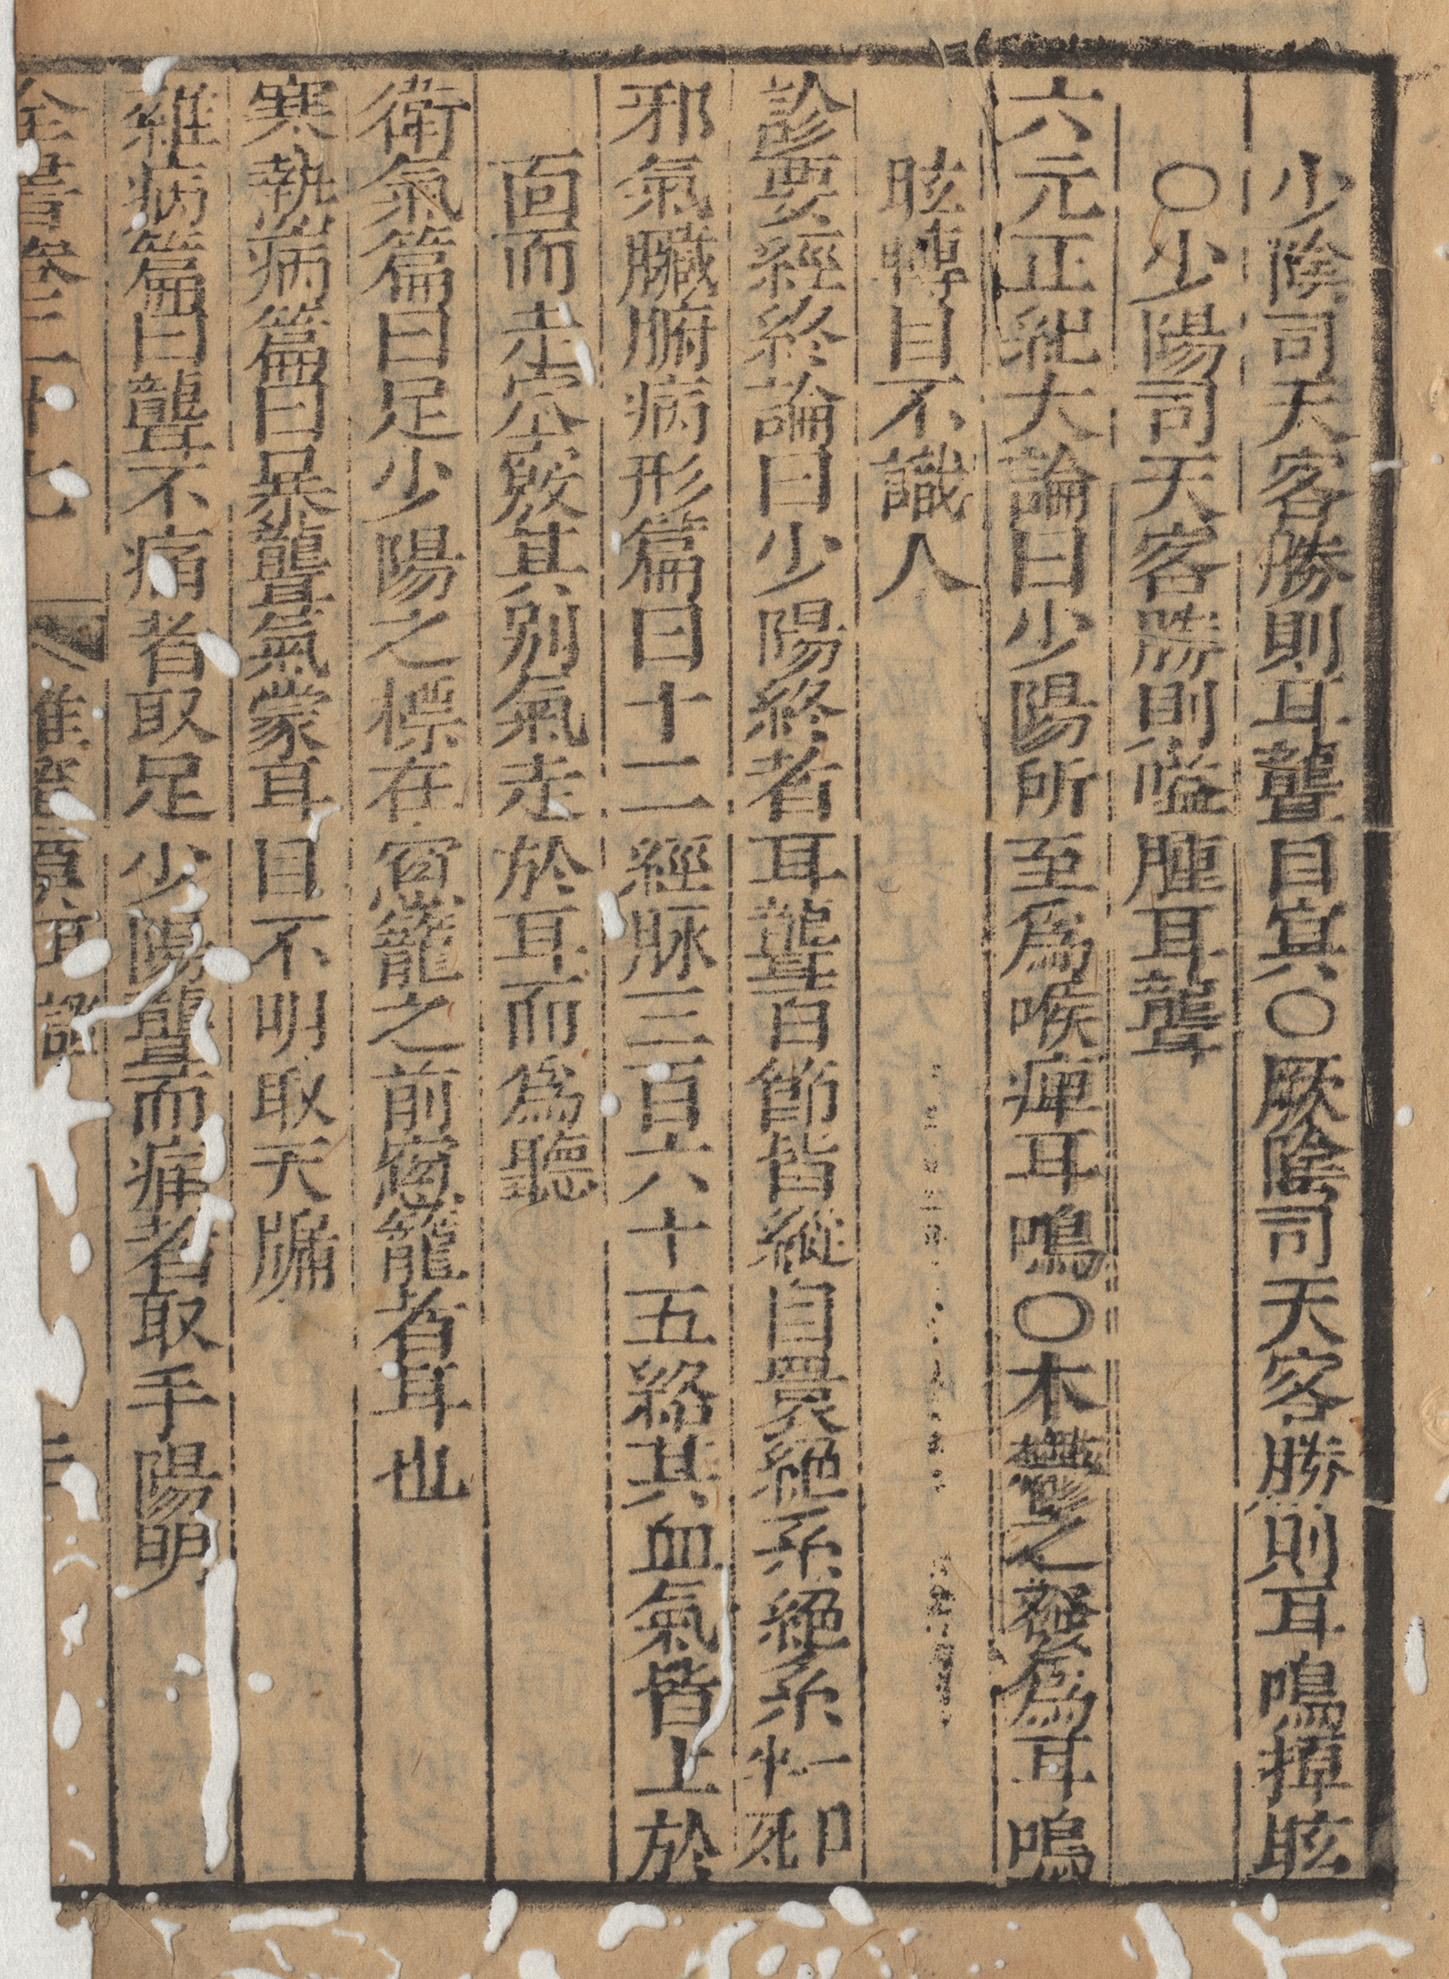 少陰司天客勝則耳聾目㝠〇厥陰司天客勝則耳鳴掉眩
〇少陽司天客勝則嗌腫耳聾
六元正紀大論曰少陽所至爲喉痺耳鳴〇木鬱之發爲耳鳴
眩轉目不識人
診要經終論曰少陽終者耳聾百節皆縱目睘絕系絕系一日半死
邪氣臟腑病形篇曰十二經脉三百六十五絡其血氣皆上於
面而走空竅其别氣走於耳而爲聽
衛氣篇曰足少陽之標在窻籠之前窻籠者耳也
寒熱病篇曰暴聾氣蒙耳目不明取天牖
雜病篇曰聾不痛者取足少陽聾而痛者取手陽明
全書卷二十七 雜證 耳證